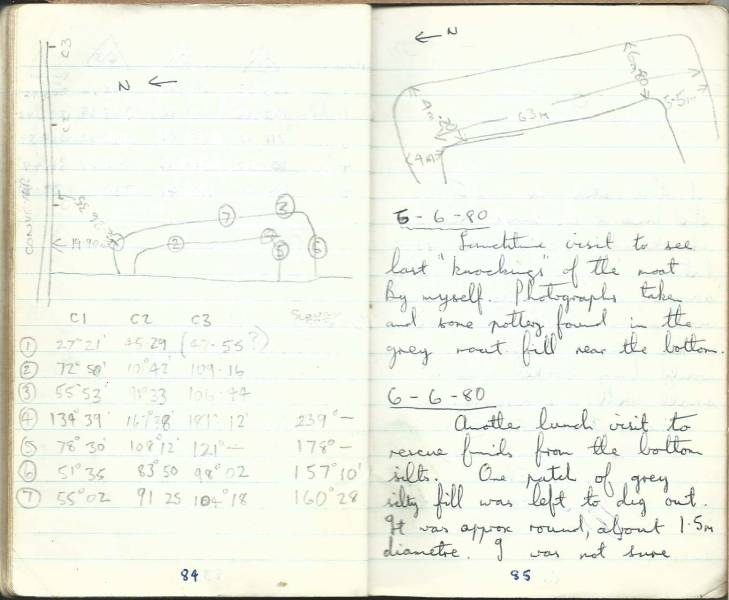 C3
N
CONVEYOR
19.90m
7
3
2
5
6
C1 C2 C3 Survey
1 27°21' 45.29 ( 55'?)
2 72°50' 101°42' 109.15
3 55°53 91°33 106.44
4 134°39' 167°38' 181°12' 239°—
5 78°30' 108°12' 121°— 178°—
6 51°35 83°50 98°02 157°10'
7 55°02 91 25 104°18 160°28
84
N
6m.80
5.5m
63m
4m
5-6-80
Lunchtime visit to see
last "knockings" of the moat
By myself. Photographs taken
and some pottery found in the
grey moat fill near the bottom.
6-6-80
Another lunch visit to
rescue finds from the bottom
silts. One patch of grey
silty fill was left to dig out.
It was approx round, about 1.5m
diametre. I was not sure
85